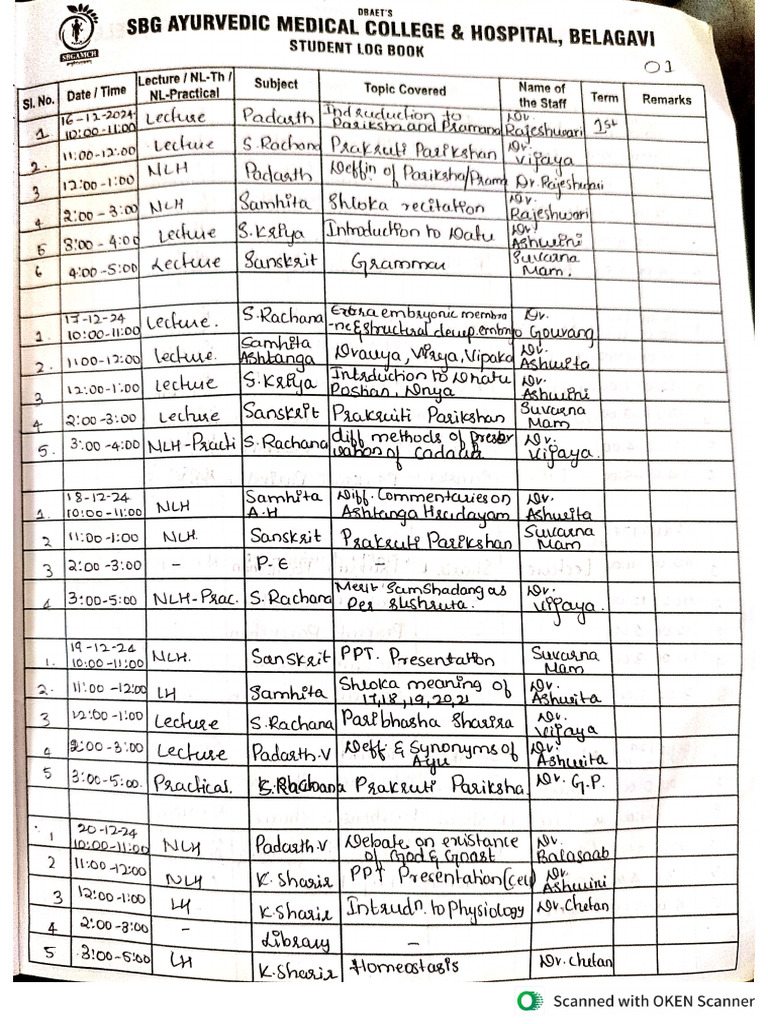 DBAET'S
SBG AYURVEDIC MEDICAL COLLEGE & HOSPITAL, BELAGAVI
STUDENT LOG BOOK
SBGAMCH
01
Sl. No. Date / Time Lecture / NL-Th / NL-Practical Subject Topic Covered Name of the Staff Term Remarks
1 16-12-2024 10:00-11:00 Lecture Padarth Indruduction to Pariksha and Pramana Dr. Rajeshwari 1st
2. 11:00-12:00 Lecture S.Rachana Prakruti Parikshan Dr. Vijaya
3 12:00-1:00 NLH Padarth Deffin of Pariksha/Prama Dr. Rajeshwari
4 2:00-3:00 NLH Samhita Shloka recitation Dr. Rajeshwari
5 3:00-4:00 Lecture S.Kriya Introduction to Datu Dr. Ashwini
6 4:00-5:00 Lecture Sanskrit Grammar Suvarna Mam.
1. 17-12-24 10:00-11:00 Lecture. S.Rachana Extra embryonic membra-ne & structural devep. embryo Dr. Gourang
2. 11:00-12:00 Lecture. Samhita Ashtanga Dravya, Virya, Vipaka Dr. Ashwita
3 12:00-1:00 Lecture S.Kriya Intrduction to Dhatu Poshan, Dnya Dr. Ashwini
4 2:00-3:00 Lecture Sanskrit Prakruiti Parikshan Suvarna Mam
5. 3:00-4:00 NLH-Practi S.Rachana diff methods of Presbrvation of Cadava Dr. Vijaya.
1. 18-12-24 10:00-11:00 NLH Samhita A.H Diff. Commentaries on Ashtanga Hrudayam Dr. Ashwita
2 11:00-1:00 NLH. Sanskrit Prakruti Parikshan Suvarna Mam
3 2:00-3:00 - P.E -
4 3:00-5:00 NLH-Prac. S.Rachana Merit Samshadang as Per Sushruta. Dr. Vijaya.
1. 19-12-24 10:00-11:00 NLH. Sanskrit PPT. Presentation Suvarna Mam
2. 11:00-12:00 LH Samhita Shloka meaning of 17,18,19,20,21 Dr. Ashwita
3 12:00-1:00 Lecture S.Rachana Paribhasha Sharira Dr. Vijaya
4 2:00-3:00 Lecture Padarth.V Deff & Synonyms of Ayu Dr. Ashwita
5 3:00-5:00. Practical. Rachana Prakruti Pariksha. Dr. G.P.
1 20-12-24 10:00-11:00 NLH Padarth.V Debate on existance of God & Goast Dr. Balasaab
2 11:00-12:00 NLH K.Sharir PPT Presentation (Cell) Dr. Ashwini
3 12:00-1:00 LH K.Sharir Intrudn. to Physiology Dr.Chetan
4 2:00-3:00 - Library -
5 3:00-5:00 LH K.Sharir Homeostasis Dr.Chetan
Scanned with OKEN Scanner